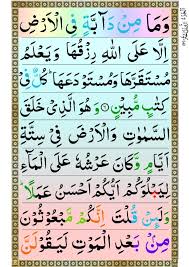 وَمَا مِنْ دَآبَّةٍ فِي الْاَرْضِ
اِلَّا عَلَى اللّٰهِ رِزْقُهَا وَيَعْلَمُ
مُسْتَقَرَّهَا وَمُسْتَوْدَعَهَا كُلٌّ فِيْ
كِتٰبٍ مُّبِيْنٍ ۝ وَهُوَ الَّذِيْ خَلَقَ
السَّمٰوٰتِ وَالْاَرْضَ فِيْ سِتَّةِ
اَيَّامٍ وَّكَانَ عَرْشُهٗ عَلَى الْمَآءِ
لِيَبْلُوَكُمْ اَيُّكُمْ اَحْسَنُ عَمَلًا
وَلَئِنْ قُلْتَ اِنَّكُمْ مَّبْعُوْثُوْنَ
مِنْ بَعْدِ الْمَوْتِ لَيَقُوْلَنَّ